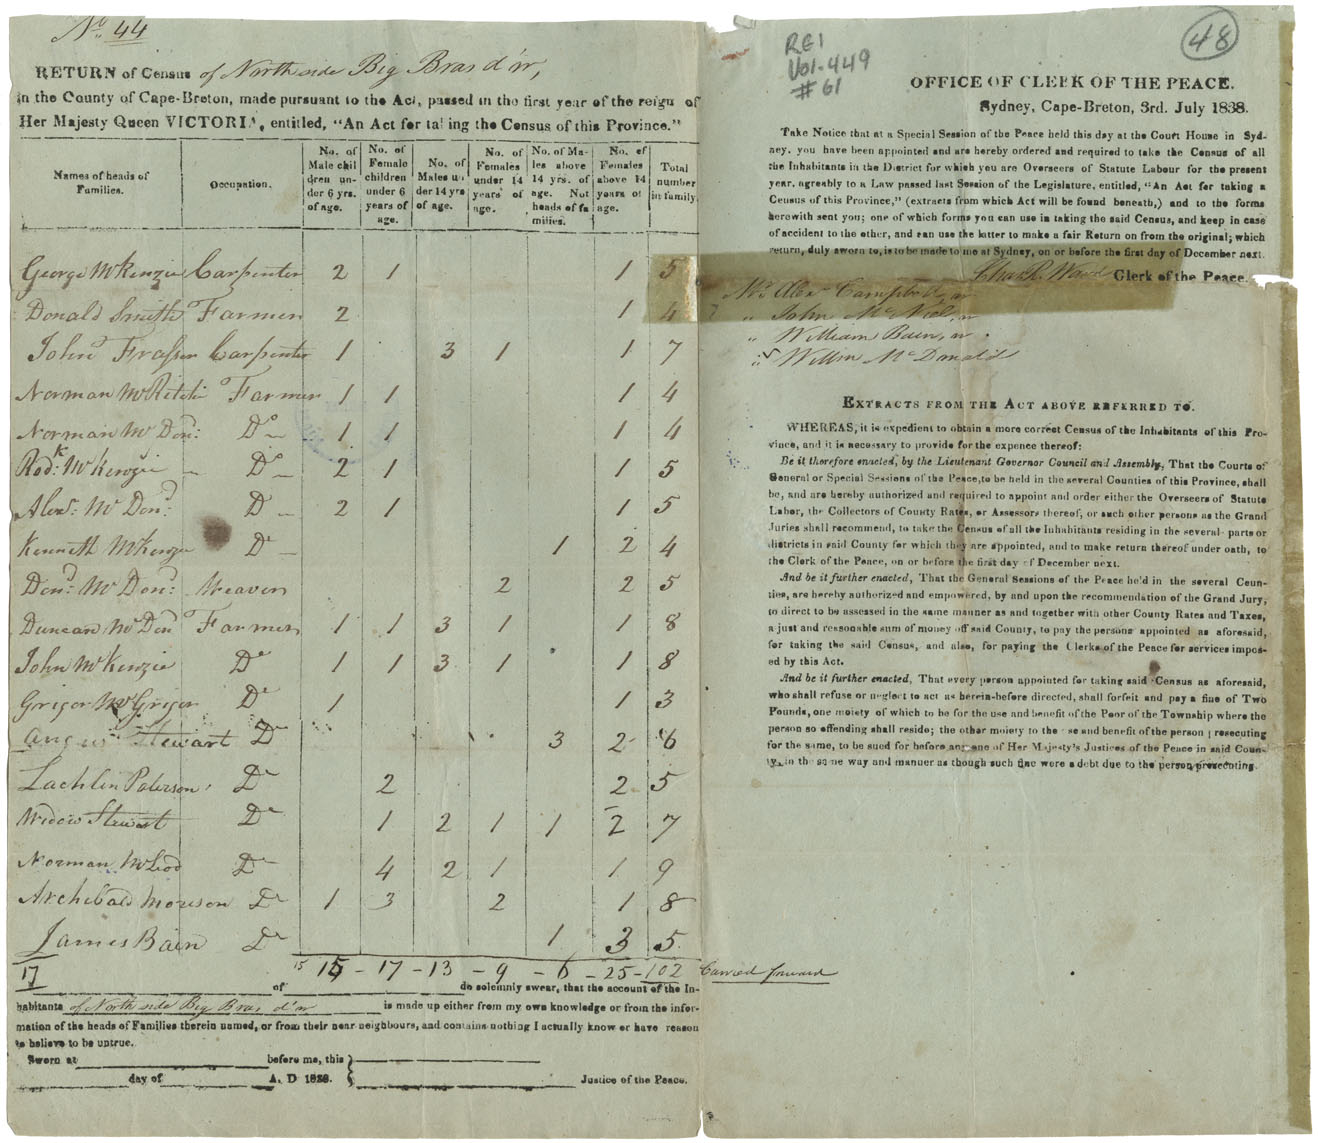 No. 44
RETURN of Census of North side Big Bras d'or,
in the County of Cape-Breton, made pursuant to the Act, passed in the first year of the reign of
Her Majesty Queen VICTORIA, entitled, "An Act for taking the Census of this Province."
Names of heads of Families. | Occupation. | No. of Male children under 6 yrs. of age. | No. of Female children under 6 years of age. | No. of Males under 14 yrs of age. | No. of Females under 14 years of age. | No. of Males above 14 yrs. of age. Not heads of families. | No. of Females above 14 years of age. | Total number in family.
George McKenzie Carpenter 2 1 1 5
Donald Smith Farmer 2 1 4
John Frasser Carpenter 1 3 1 1 7
Norman McRitchie Farmer 1 1 1 4
Norman McDon: Do 1 1 1 4
Rodk. McKenzie Do 2 1 1 5
Alexr. McDond: D 2 1 1 5
Kenneth McKenzie Do 1 2 4
Dond: McDond: Weaver 2 2 5
Duncan McDond Farmer 1 1 3 1 1 8
John McKenzie Do 1 1 3 1 1 8
Grigor McGrigor Do 1 1 3
Angus Stewart Do 3 2 6
Lachlin Paterson Do 2 2 5
Widow Stewart Do 1 2 1 1 2 7
Norman McLeod Do 4 2 1 1 9
Archibald Morison Do 1 3 2 1 8
James Bain Do 1 3 5
17 15 15 - 17 - 13 - 9 - 6 - 25 - 102 Carried forward
of do solemnly swear, that the account of the In-
habitants of North side Big Bras d'or is made up either from my own knowledge or from the infor-
mation of the heads of Families therein named, or from their near neighbours, and contains nothing I actually know or have reason
to believe to be untrue.
Sworn at before me, this
day of A. D 1838. Justice of the Peace.
48
RG1
Vol-449
#61
OFFICE OF CLERK OF THE PEACE.
Sydney, Cape-Breton, 3rd. July 1838.
Take Notice that at a Special Session of the Peace held this day at the Court House in Syd-
ney, you have been appointed and are hereby ordered and required to take the Census of all
the Inhabitants in the District for which you are Overseers of Statute Labour for the present
year, agreably to a Law passed last Session of the Legislature, entitled, "An Act for taking a
Census of this Province," (extracts from which Act will be found beneath,) and to the forms
herewith sent you; one of which forms you can use in taking the said Census, and keep in case
of accident to the other, and can use the latter to make a fair Return on from the original; which
return, duly sworn to, is to be made to me at Sydney, on or before the first day of December next.
Chas. R. Ward Clerk of the Peace.
Mr. Alexr Campbell,
" John McNeil,
" William Bain,
" Willm McDonald
EXTRACTS FROM THE ACT ABOVE REFERRED TO.
WHEREAS, it is expedient to obtain a more correct Census of the Inhabitants of this Pro-
vince, and it is necessary to provide for the expence thereof:
Be it therefore enacted, by the Lieutenant Governor Council and Assembly, That the Courts of
General or Special Sessions of the Peace, to be held in the several Counties of this Province, shall
be, and are hereby authorized and required to appoint and order either the Overseers of Statute
Labor, the Collectors of County Rates, or Assessors thereof, or such other persons as the Grand
Juries shall recommend, to take the Census of all the Inhabitants residing in the several parts or
districts in said County for which they are appointed, and to make return thereof under oath, to
the Clerk of the Peace, on or before the first day of December next.
And be it further enacted, That the General Sessions of the Peace held in the several Coun-
ties, are hereby authorized and empowered, by and upon the recommendation of the Grand Jury,
to direct to be assessed in the same manner as and together with other County Rates and Taxes,
a just and reasonable sum of money off said County, to pay the persons appointed as aforesaid,
for taking the said Census, and also, for paying the Clerks of the Peace for services impos-
ed by this Act.
And be it further enacted, That every person appointed for taking said Census as aforesaid,
who shall refuse or neglect to act as herein-before directed, shall forfeit and pay a fine of Two
Pounds, one moiety of which to be for the use and benefit of the Poor of the Township where the
person so offending shall reside; the other moiety to the use and benefit of the person prosecuting
for the same, to be sued for before any one of Her Majesty's Justices of the Peace in said Coun-
ty, in the same way and manner as though such fine were a debt due to the person prosecuting.